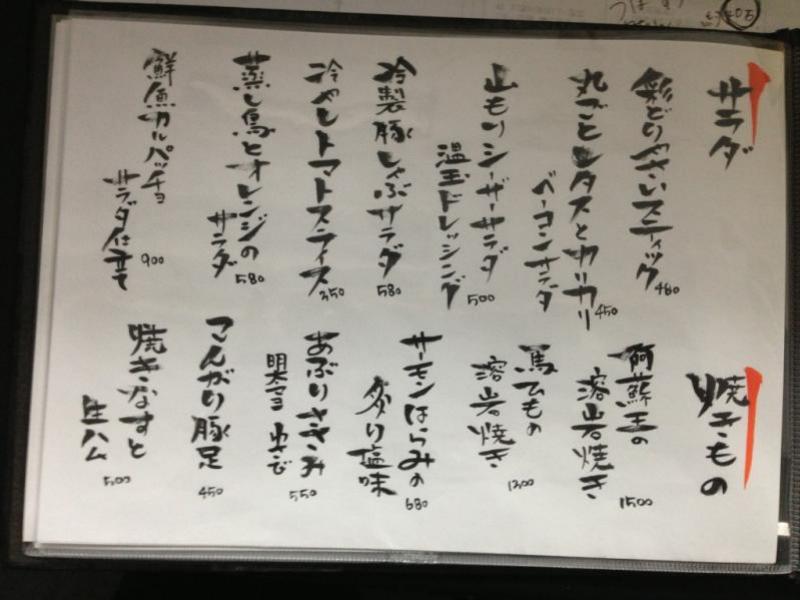 サラダ
彩どりやさいスティック
480
丸ごとレタスとカリカリ
ベーコンサラダ
450
山もりシーザーサラダ
温玉ドレッシング
500
冷製豚しゃぶサラダ
580
冷やしトマトスライス
350
蒸し鳥とオレンジの
サラダ
580
鮮魚カルパッチョ
サラダ仕立て
900
焼きもの
阿蘇王の
溶岩焼き
1500
馬ひもの
溶岩焼き
1200
サーモンはらみの
炙り塩味
680
あぶりささみ
明太マヨ わさび
550
こんがり豚足
450
焼きなすと
生ハム
500